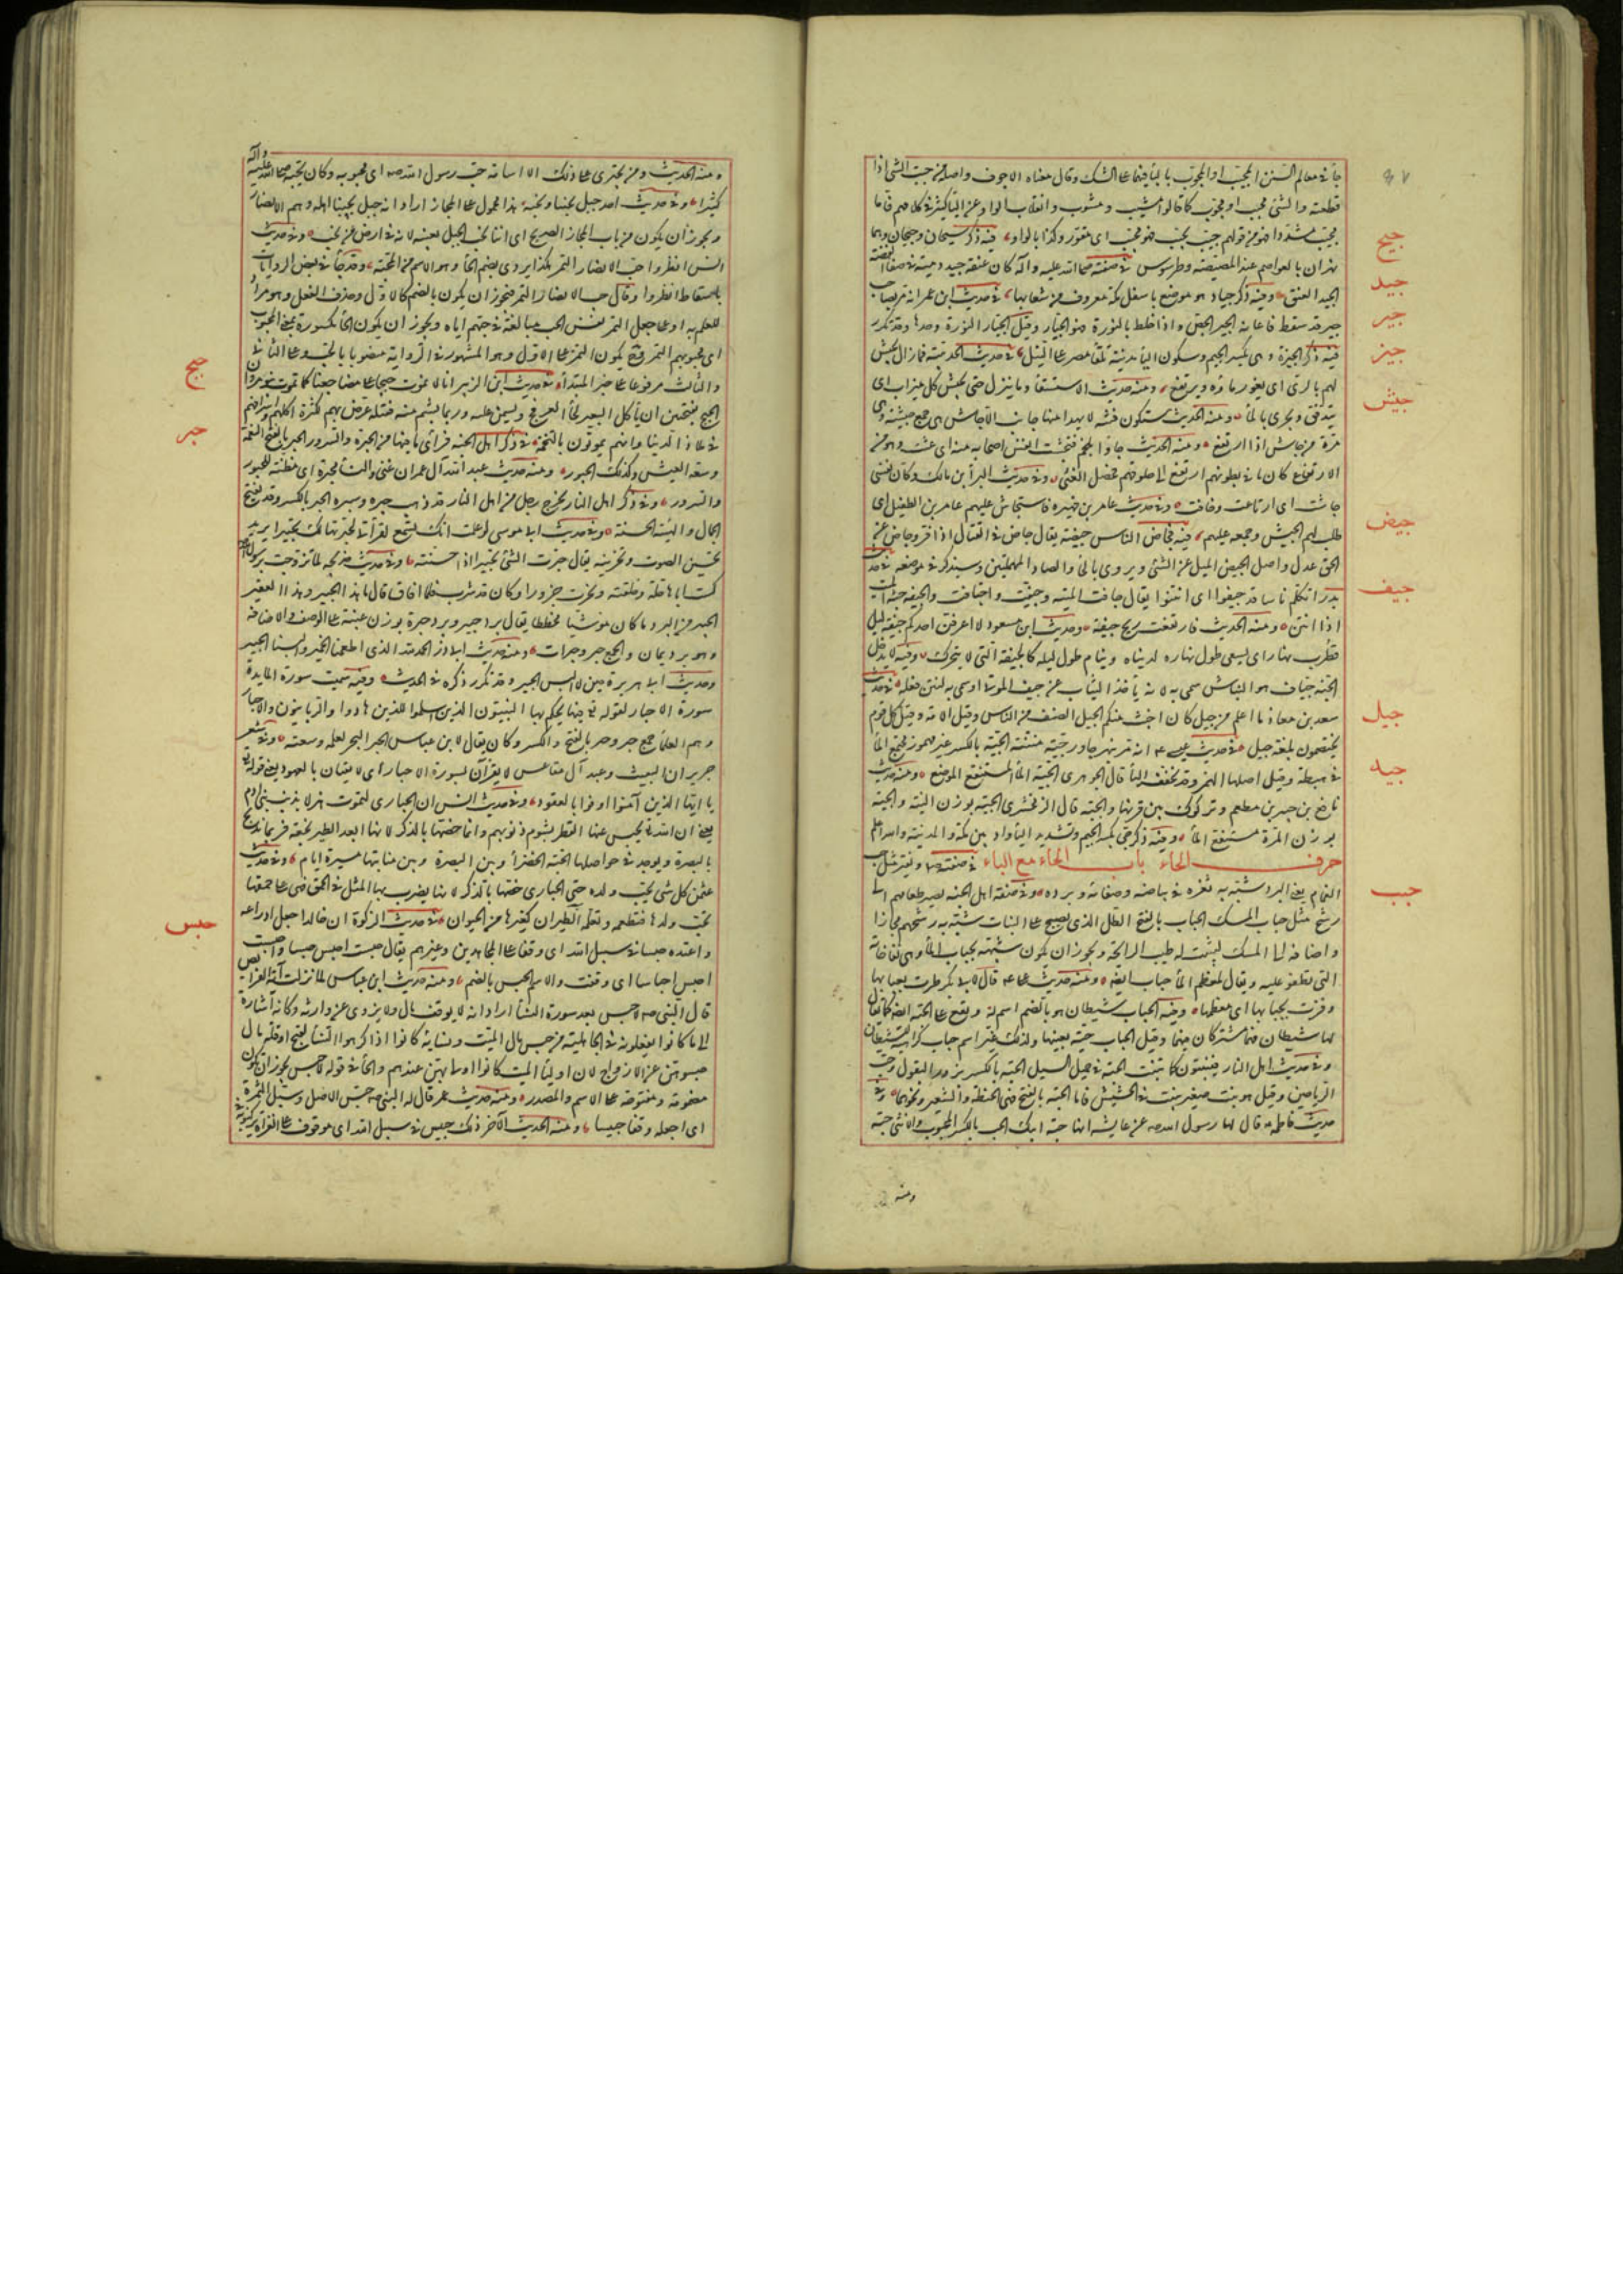 جاء في معالم السنن المجيب او المجوب بالباء فيهما على الشك وقال معناه الاجوف واصله من جبت الشئ اذا
قطعته والشئ مجيب او مجوب كما قالوا مشيب ومشوب وانقلاب الواو عن الياء كثير في كلامهم فاما
مجيب مشددا فهو من قولهم جيب يجيب فهو مجيب اى مقور وكذا بالواو فيه ذكر سيحان وجيحان وهما
جيح
نهران بالعواصم عند المصيصة وطرسوس في صفته صلى الله عليه واله كان عنقه جيد دمية في صفاء الفضة
جيد
الجيد العنق وفيه ذكر جياد هو موضع باسفل مكة معروف من شعابها في حديث ابن عمر انه مر بصاحب
جير
جير قد سقط فاعانه الجير الجص واذا خلط بالنورة فهو الجيار وقيل الجيار النورة وحدها وقد تكرر
جيز
فيه ذكر الجيزة وهى بكسر الجيم وسكون الياء مدينة تلقاء مصر على النيل في حديث الحديبية فما زال يجيش
جيش
لهم بالرى اى يفور ماؤه ويرتفع ومنه حديث الاستسقاء وما ينزل حتى يجيش كل ميزاب اى
يتدفق ويجرى بالماء ومنه الحديث ستكون فتنة لا يهدأ منها جانب الا جاش
مرة من جاش اذا ارتفع ومنه الحديث جاؤا بلحم فتجيشت انفس اصحابه منه اى غثت وهو من
الارتفاع كان ما في بطونهم ارتفع الى حلوقهم فحصل الغثى وفي حديث البراء بن مالك وكان نفسى
جاشت اى ارتاعت وخافت وفي حديث عامر بن فهيرة فاستجاش عليهم عامر بن الطفيل اى
جيض
طلب لهم الجيش وجمعه عليهم فيه فجاض الناس جيضة يقال جاض في القتال اذا فر وجاض عن
الحق عدل واصل الجيض الميل عن الشئ ويروى بالحاء والصاد المهملتين وسيذكر في موضعه في حديث
جيف
بدر اتكلم ناسا قد جيفوا اى انتنوا يقال جافت الميتة وجيفت واجتافت والجيفة جثة الميت
اذا انتن ومنه الحديث فارتفعت ريح جيفة وحديث ابن مسعود لا اعرفن احدكم جيفة ليل
قطرب نهار اى يسعى طول نهاره لدنياه وينام طول ليله كالجيفة التى لا يتحرك وفيه لا يدخل
الجنة جياف هو النباش سمى به لانه يأخذ الثياب عن جيف الموتى او سمى به لنتن فعله في حديث
جيل
سعد بن معاذ ما اعلم من جيل كان اخبث منكم الجيل الصنف من الناس وقيل الامة وقيل كل قوم
يختصون بلغة جيل في حديث عيسى ع انه مر بنهر جاور جية منتنة الجية بالكسر غير مهموز مجتمع الماء
جيه
في هبطة وقيل اصلها الهمز وقد تخفف الياء قال الجوهرى الجية الماء المستنقع الموضع ومنه حديث
نافع بن جبير بن مطعم وتركوك بين قرنها والجية قال الزمخشرى الجية بوزن النية والجية
بوزن المرة مستنقع الماء وفيه ذكر جى بكسر الجيم وتشديد الياء واد بين مكة والمدينة والله اعلم
حرف الحاء باب الحاء مع الباء في صفته ص ويفتر مثل حب
حبب
الغمام يعنى البرد شبه به ثغره في بياضه وصفائه وبرده وفي صفة اهل الجنة يصير طعامهم الى
رشح مثل حباب المسك الحباب بالفتح الطل الذى يصبح على النبات شبه به رشحهم مجازا
واضافه الى المسك ليثبت له طيب الرائحة ويجوز ان يكون شبهه بحباب الماء وهى نفاخاته
التى تطفو عليه ويقال لمعظم الماء حباب ايضا ومنه حديث على ع قال لابى بكر طرت بعبابها
وفزت بحبابها اى معظمها وفيه الحباب شيطان هو بالضم اسم له ويقع على الحية ايضا كما يقال
لها شيطان فهما مشتركان فيهما وقيل الحباب حية بعينها ولذلك غير اسم حباب كراهية للشيطان
وفي حديث اهل النار فينبتون كما تنبت الحبة في حميل السيل الحبة بالكسر بزور البقول وحب
الرياحين وقيل هو نبت صغير ينبت في الحشيش فاما الحبة بالفتح فهى الحنطة والشعير ونحوهما وفي
حديث فاطمة قال لها رسول الله ص عن عايشة انها حبة ابيك الحب بالكسر المحبوب والانثى حبة
ومنه
ومنه الحديث ومن يجترئ على ذلك الا اسامة حب رسول الله ص اى محبوبه وكان يحبه صلى الله عليه واله
كثيرا وفي حديث احد جبل يحبنا ونحبه هذا محمول على المجاز اراد انه جبل يحبنا اهله وهم الانصار
ويجوز ان يكون من باب المجاز الصريح اى اننا نحب الجبل بعينه لانه في ارض من نحب وفي حديث
انس انظروا حب الانصار التمر هكذا يروى بضم الحاء وهو الاسم من المحبة وقد جاء في بعض الروايات
باسقاط انظروا وقال حب الانصار التمر فيجوز ان يكون بالضم كالاول وحذف الفعل وهو مراد
للعلم به او على جعل التمر نفس الحب مبالغة في حبهم اياه ويجوز ان يكون الحاء مكسورة بمعنى المحبوب
اى محبوبهم التمر وح يكون التمر على الاول وهو المشهور في الرواية منصوبا بالحب وعلى الثانى
حبج
والثالث مرفوعا على خبر المبتدأ في حديث ابن الزبير انا لا نموت حبجا على مضاجعنا كما تموت بنو مروان
الحبج بفتحتين ان يأكل البعير لحاء العرفج ويسمن عليه وربما بشم منه فقتله عرض بهم لكثرة اكلهم واسرافهم
حبر
في ملاذ الدنيا وانهم يموتون بالتخمة في ذكر اهل الجنة فرأى ما فيها من الحبرة والسرور الحبر بالفتح النعمة
وسعة العيش وكذلك الحبور ومنه حديث عبد الله آل عمران غنى والنساء محبرة اى مظنة للحبور
والسرور وفي ذكر اهل النار يخرج رجل من اهل النار قد ذهب حبره وسبره الحبر بالكسر وقد يفتح
الجمال والهيئة الحسنة وفي حديث ابى موسى لو علمت انك تسمع لقرأتى لحبرتها لك تحبيرا يريد
تحسين الصوت وتحزينه يقال حبرت الشئ تحبيرا اذا حسنته وفي حديث خديجة لما تزوجت برسول الله ص
كست اباها حلة وخلقته ونحرت جزورا وكان قد شرب فلما افاق قال ما هذا الحبير وهذا العقير
الحبير من البرد ما كان موشيا مخططا يقال برد حبير وبرد حبرة بوزن عنبة على الوصف والاضافة
وهو برد يمان والجمع حبر وحبرات ومنه حديث ابى ذر الحمد لله الذى اطعمنا الخمير والبسنا الحبير
وحديث ابى هريرة حين لا البس الحبير وقد تكرر ذكره في الحديث وفيه سميت سورة المايدة
سورة الاحبار لقوله تع فيها يحكم بها النبيون الذين اسلموا للذين هادوا والربانيون والاحبار
وهم العلماء جمع حبر وحبر بالفتح والكسر وكان يقال لابن عباس الحبر البحر لعلمه وسعته وفي شعر
جرير ان البعيث وعبد آل مقاعس لا يقرآن بسورة الاحبار اى لا يفيان بالعهود يعنى قوله تع
يا ايها الذين آمنوا اوفوا بالعقود وفي حديث انس ان الحبارى لتموت هزلا بذنب بنى ادم
يعنى ان الله تع يحبس عنها القطر بشوم ذنوبهم وانما خصها بالذكر لانها ابعد الطير نجعة فربما تذبح
بالبصرة ويوجد في حواصلها الحبة الخضراء وبين البصرة وبين منابتها مسيرة ايام وفي حديث
عثمن كل شئ يحب ولده حتى الحبارى خصها بالذكر لانها يضرب بها المثل في الحمق فهى على حمقها
حبس
تحب ولدها فتطعمه وتعلمه الطيران كغيرها من الحيوان في حديث الزكوة ان خالدا جعل ادراعه
واعتده حبسا في سبيل الله اى وقفا على المجاهدين وغيرهم يقال حبست احبس حبسا واحبست
احبس احباسا اى وقفت والاسم الحبس بالضم ومنه حديث ابن عباس لما نزلت آية الفرايض
قال النبى ص لا حبس بعد سورة النساء اراد انه لا يوقف مال ولا يزوى عن وارثه وكانه اشارة
الى ما كانوا يفعلونه في الجاهلية من حبس مال الميت ونسائه كانوا اذا كرهوا النساء لقبح او قلة مال
حبسوهن عن الازواج لان اولياء الميت كانوا اولى بهن عندهم والحاء في قوله لا حبس يجوز ان يكون
مضمومة ومفتوحة على الاسم والمصدر ومنه حديث عمر قال له النبى ص حبس الاصل وسبل الثمرة
اى اجعله وقفا حبيسا ومنه الحديث الآخر ذلك حبيس في سبيل الله اى موقوف على الغزاة